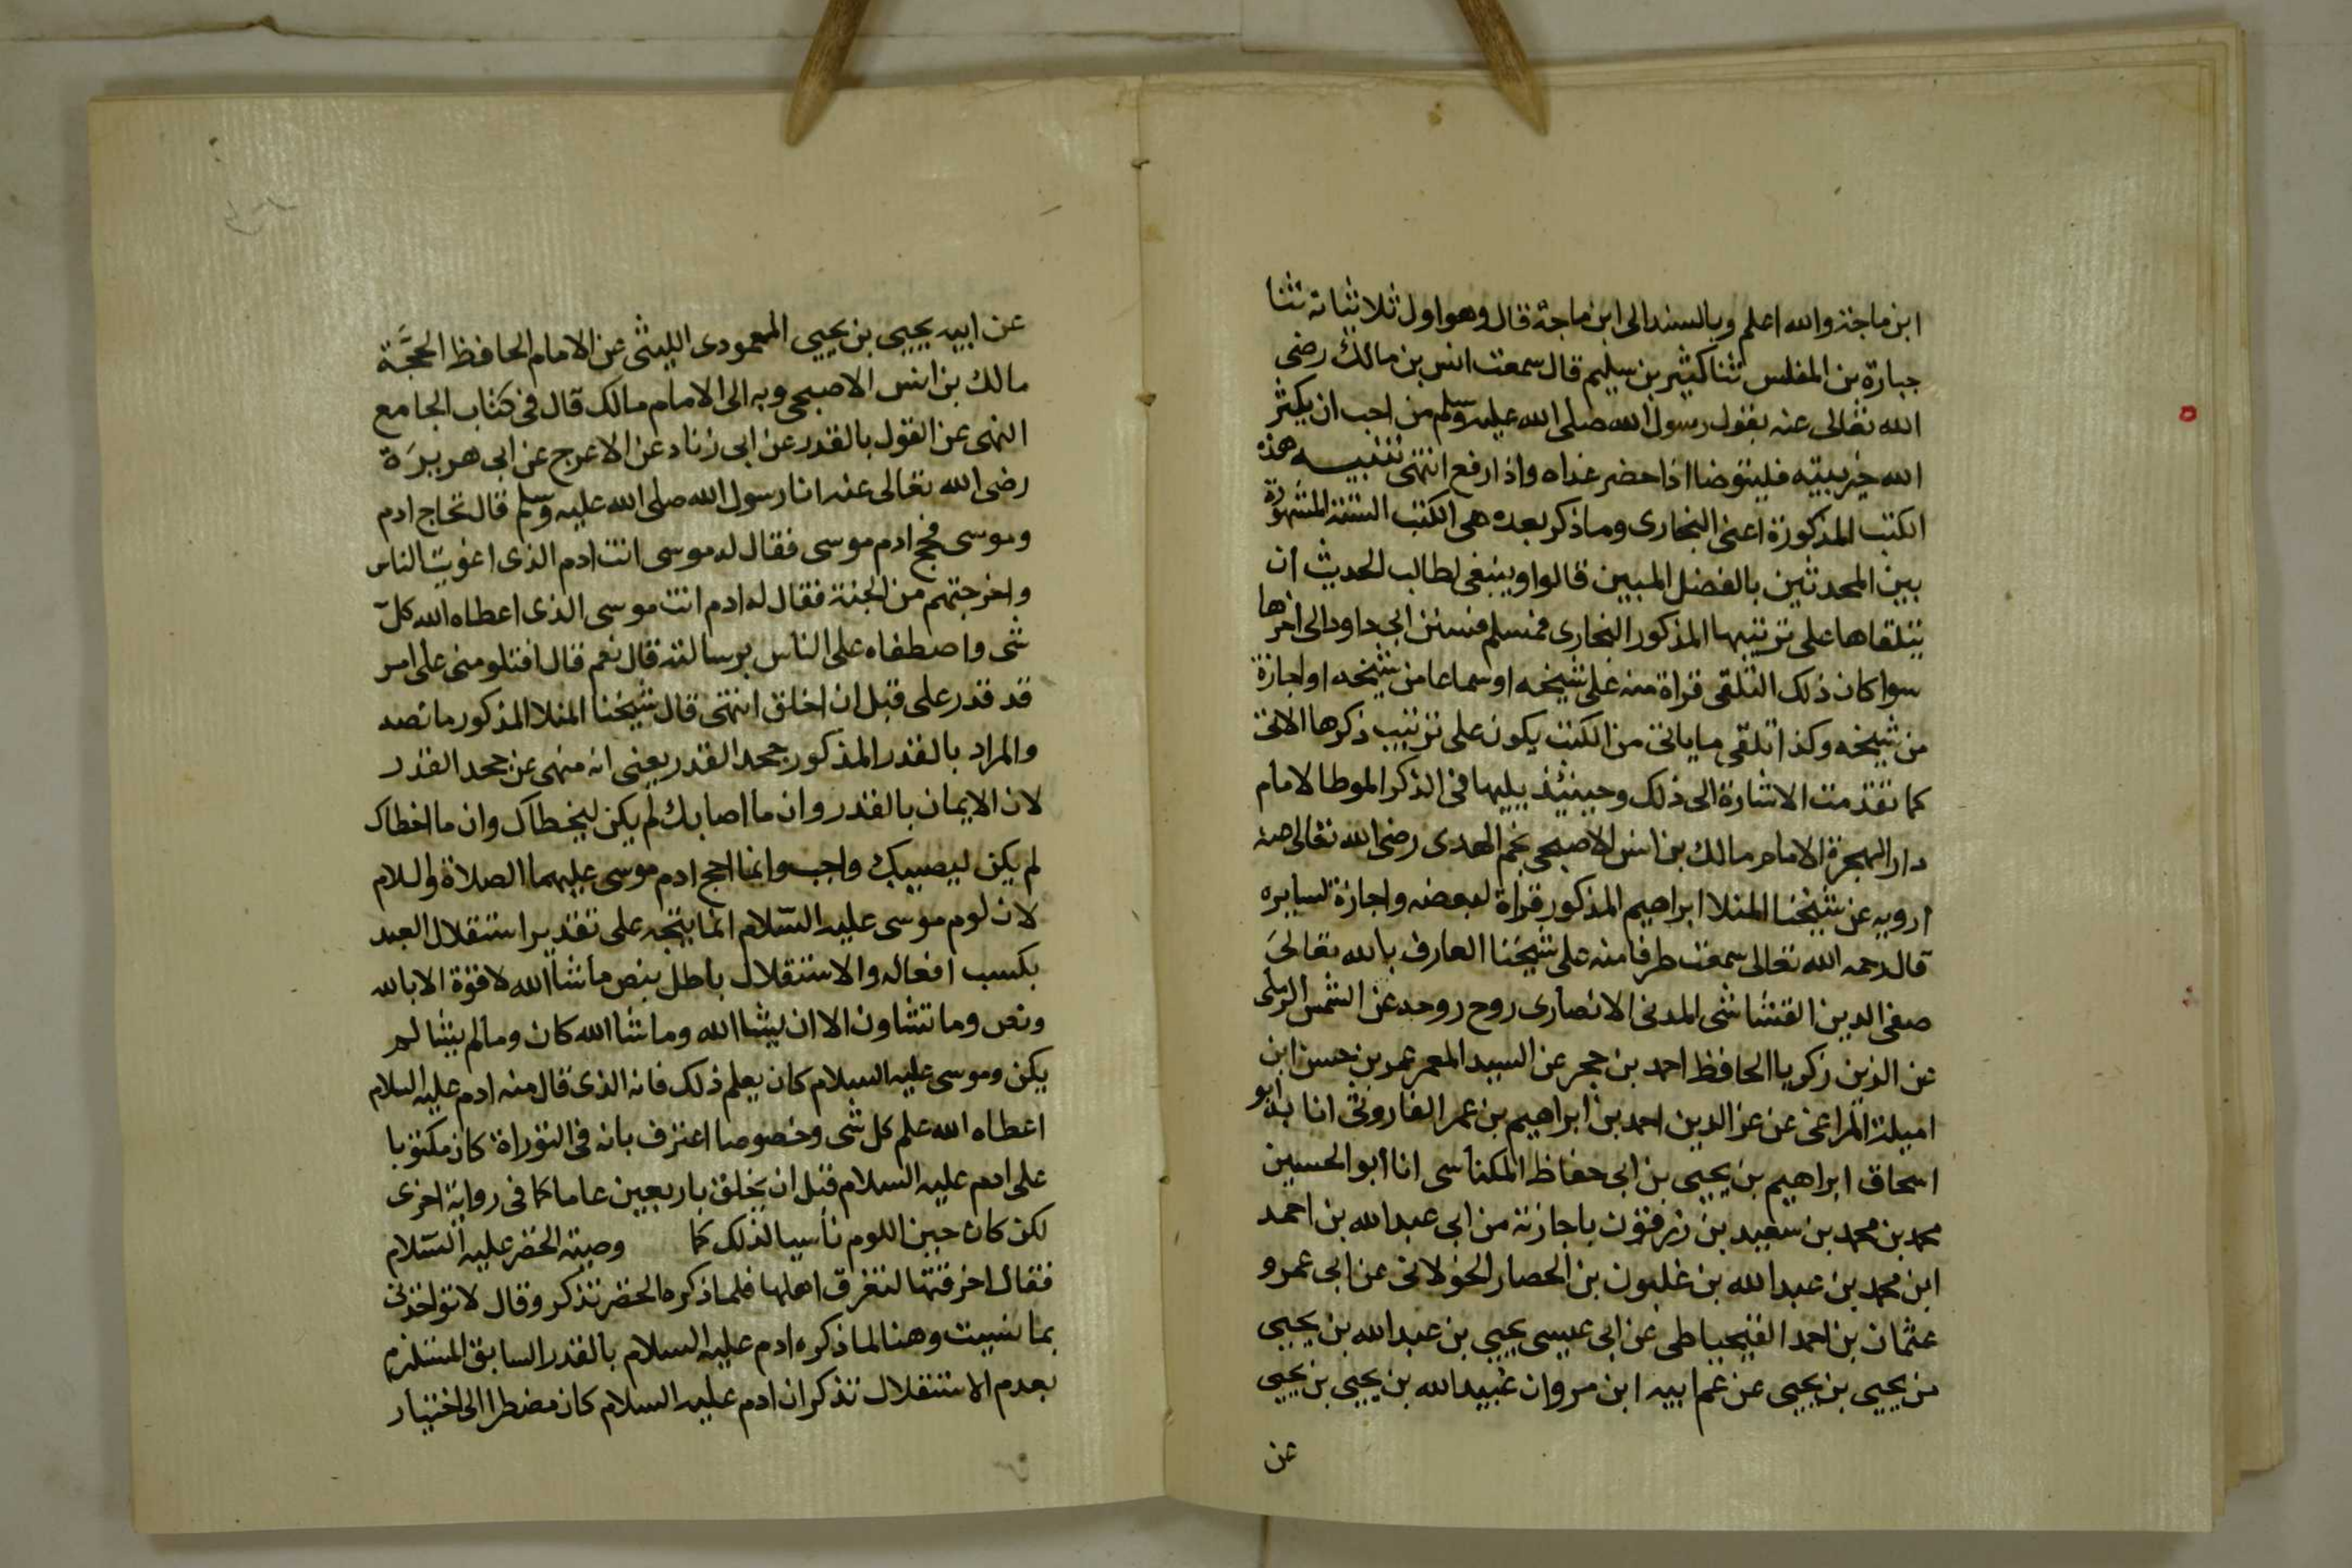 ابن ماجة والله اعلم وبالسند الى ابن ماجة قال وهو اول ثلاثياته ثنا
جبارة بن المغلس ثنا كثير بن سليم قال سمعت انس بن مالك رضى
الله تعالى عنه يقول رسول الله صلى الله عليه وسلم من احب ان يكثر
الله خير بيته فليتوضا اذا حضر غداه واذا رفع انتهى تنبيه هذه
الكتب المذكورة اعنى البخارى وما ذكر بعده هى الكتب الستة المشهورة
بين المحدثين بالفضل المبين قالوا وينبغى لطالب الحديث ان
يتلقاها على ترتيبها المذكور البخارى فمسلم فسنن ابى داود الى اخرها
سوا كان ذلك التلقى قراة منه على شيخه او سماعا من شيخه او اجازة
من شيخه وكذا تلقى ما ياتى من الكتب يكون على ترتيب ذكرها الاتى
كما تقدمت الاشارة الى ذلك وحينئذ يليها فى الذكر الموطا لامام
دار الهجرة الامام مالك بن انس الاصبحى نجم الهدى رضى الله تعالى عنه
ارويه عن شيخنا المنلا ابراهيم المذكور قراة لبعضه واجازة لسايره
قال رحمه الله تعالى سمعت طرفا منه على شيخنا العارف بالله تعالى
صفى الدين القشاشى المدنى الانصارى روح روحه عن الشمس الرملى
عن الزين زكريا الحافظ احمد بن حجر عن السيد المعمر عمر بن حسن ابن
اميلة المراغى عن عز الدين احمد بن ابراهيم بن عمر الفاروثى انا به ابو
اسحاق ابراهيم بن يحيى بن ابى حفاظ المكناسى انا ابو الحسين
محمد بن محمد بن سعيد بن زرقون باجازته من ابى عبد الله بن احمد
ابن محمد بن عبد الله بن غلبون بن الحصار الخولانى عن ابى عمرو
عثمان بن احمد القيجياطى عن ابى عيسى يحيى بن عبد الله بن يحيى
بن يحيى بن يحيى عن عم ابيه ابن مروان عبيد الله بن يحيى بن يحيى
عن
عن ابيه يحيى بن يحيى المعمودى الليثى عن الامام الحافظ الحجَّة
مالك بن انس الاصبحى وبه الى الامام مالك قال فى كتاب الجامع
النهى عن القول بالقدر عن ابى زناد عن الاعرج عن ابى هريرَة
رضى الله تعالى عنه ان رسول الله صلى الله عليه وسلم قال تحاج ادم
وموسى فحج ادم موسى فقال له موسى انت ادم الذى اغويت الناس
واخرجتهم من الجنة فقال له ادم انت موسى الذى اعطاه الله كلّ
شى واصطفاه على الناس برسالته قال نعم قال افتلومنى على امر
قد قدر على قبل ان اخلق انتهى قال شيخنا المنلا المذكور ما نصه
والمراد بالقدر المذكور جحد القدر يعنى انه منهى عن جحد القدر
لان الايمان بالقدر وان ما اصابك لم يكن ليخطاك وان ما اخطاك
لم يكن ليصيبك واجب وانما احج ادم موسى عليهما الصلاة والسلام
لان لوم موسى عليه السّلام انما يتجه على تقدير استقلال العبد
بكسب افعاله والاستقلال باطل بنص ما شا الله لا قوة الا بالله
ونص وما تشاون الا ان يشا الله وما شا الله كان وما لم يشا لم
يكن وموسى عليه السلام كان يعلم ذلك فانه الذى قال منه ادم عليه السلام
اعطاه الله علم كل شى وخصوصا اعترف بانه فى التوراة كان مكتوبا
على ادم عليه السلام قبل ان يخلق باربعين عاما كما فى رواية اخرى
لكن كان حين اللوم ناسيا لذلك كما وصيته الخضر عليه السّلام
فقال اخرقتها لتغرق اهلها فلما ذكره الخضر تذكر وقال لا تواخذنى
بما نسيت وهنا لما ذكره ادم عليه السلام بالقدر السابق المستلزم
بعدم الاستقلال تذكر ان ادم عليه السلام كان مضطرا الى اختيار